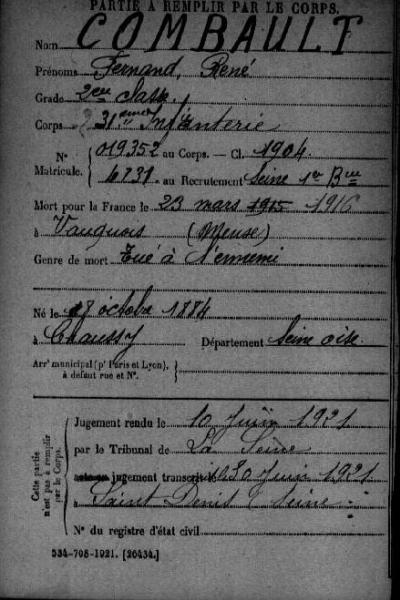 PARTIE À REMPLIR PAR LE CORPS.
Nom COMBAULT
Prénoms Fernand, René
Grade 2eme classe
Corps 31eme Infanterie
N° Matricule. { 019352 au Corps. — Cl. 1904.
4731. au Recrutement Seine 1er Bau
Mort pour la France le 23 mars 1915 1916
à Vauquois (Meuse)
Genre de mort Tué à l'ennemi
Né le 8 octobre 1884
à Chaussy Département Seine oise.
Arr' municipal (p' Paris et Lyon), à défaut rue et N°. }
Cette partie n'est pas à remplir par le Corps.
Jugement rendu le 10 Juin 1921
par le Tribunal de La Seine
jugement transcrit le 30 Juin 1921.
à Saint Denis (Seine
N° du registre d'état civil
534-708-1921. [26434.]